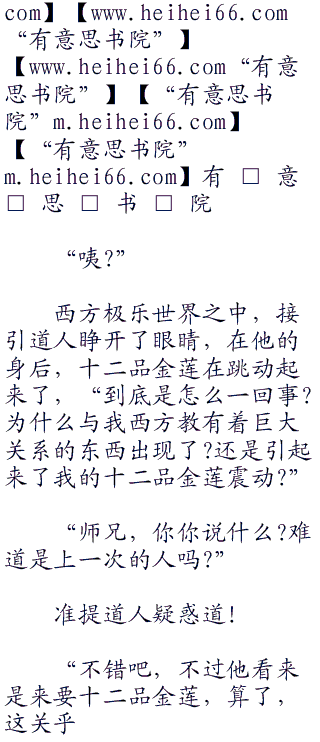 com】【www.heihei66.com
“有意思书院”】
【www.heihei66.com“有意
思书院”】【“有意思书
院”m.heihei66.com】
【“有意思书院”
m.heihei66.com】有 □ 意
□ 思 □ 书 □ 院
“咦?”
西方极乐世界之中，接
引道人睁开了眼睛，在他的
身后，十二品金莲在跳动起
来了，“到底是怎么一回事?
为什么与我西方教有着巨大
关系的东西出现了?还是引起
来了我的十二品金莲震动?”
“师兄，你你说什么?难
道是上一次的人吗?”
准提道人疑惑道！
“不错吧，不过他看来
是来要十二品金莲，算了，
这关乎